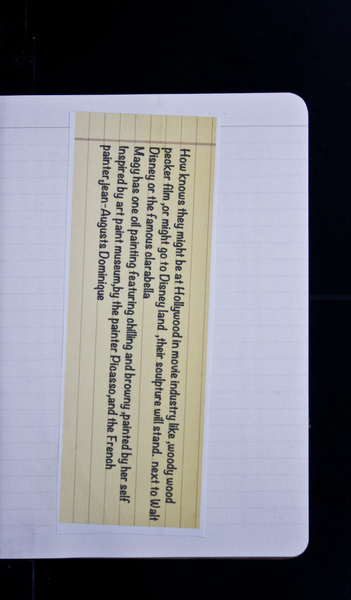 How knows they might be at Hollywood in movie industry like ,woody wood
pecker film ,or might go to Disney land ,their sculpture will stand. next to Walt
Disney or the famous clarabella
Magy has one oil painting featuring chilling and browny ,painted by her self
Inspired by art paint museum,by the painter Picasso,and the French
painter,Jean-Augusts Dominique